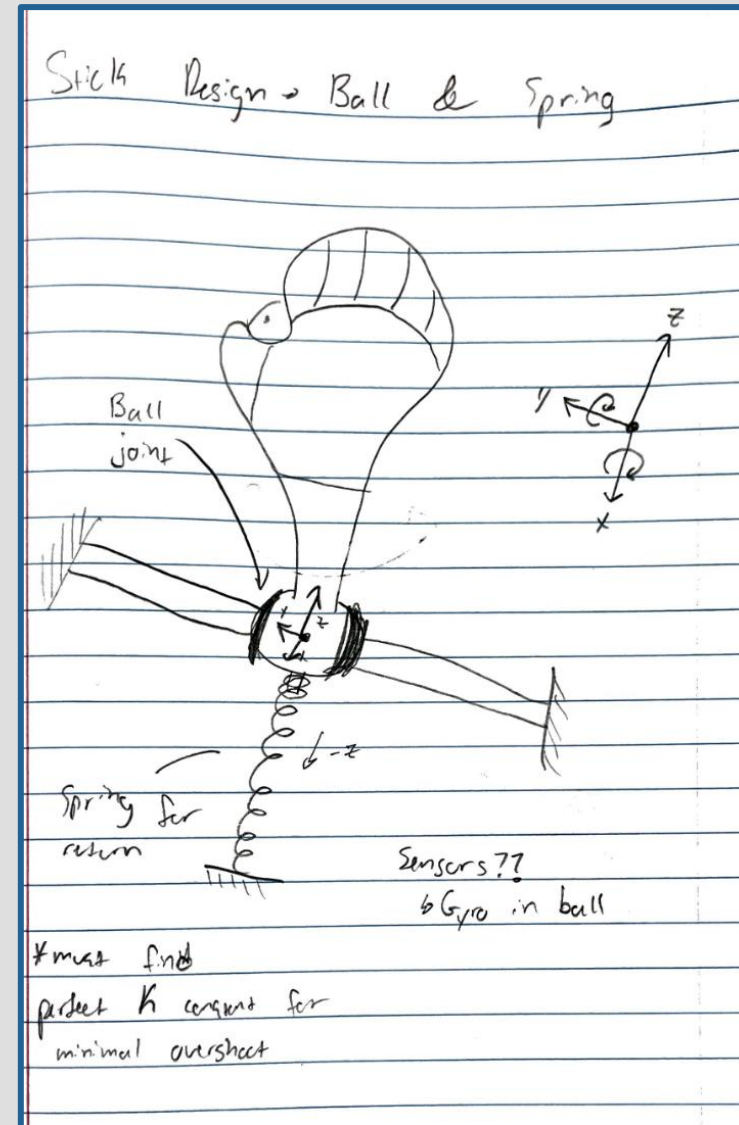 Stick Design → Ball & Spring
z
y
x
Ball
joint
z
-z
Spring for
return
Sensors??
↳ Gyro in ball
*must find
perfect K constant for
minimal overshoot